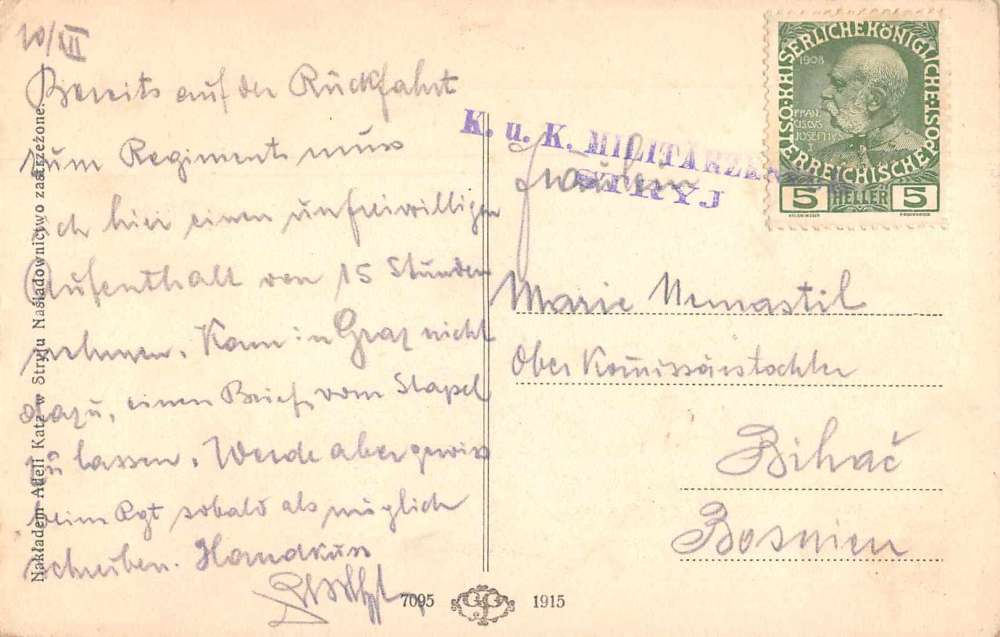 10/III
Bereits auf der Rückfahrt
zum Regiment muss
ich hier einen unfreiwilligen
Aufenthalt von 15 Stunden
nehmen. Kam in Graz nicht
dazu, einen Brief vom Stapel
zu lassen. Werde aber gewiss
beim Rgt sobald als möglich
schreiben. Handkuss
Nakładem Adeli Katz w Stryju Naśladownictwo zastrzeżone.
K. u. K. MILITÄRZEN
STRYJ
KAISERLICHE KÖNIGLICHE POST
ÖSTERREICHISCHE
1908
FRAN
CISCVS
JOSEPHVS
I
5 HELLER 5
Fräulein
Marie Nemastil
Ober Komissärstochter
Bihač
Bosnien
7095 1915